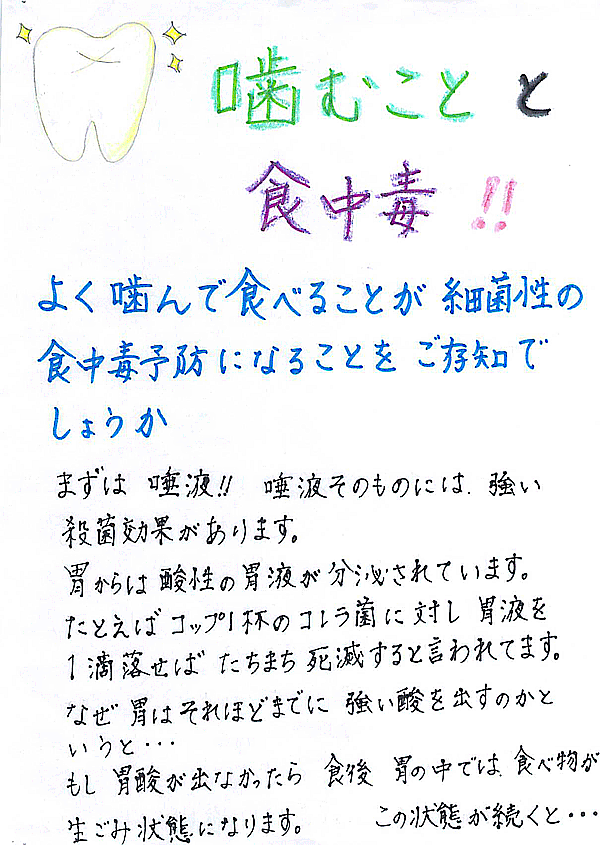 噛むことと
食中毒!!
よく噛んで食べることが細菌性の
食中毒予防になることをご存知で
しょうか
まずは 唾液!! 唾液そのものには、強い
殺菌効果があります。
胃からは酸性の胃液が分泌されています。
たとえばコップ1杯のコレラ菌に対し胃液を
1滴落せば たちまち死滅すると言われてます。
なぜ胃はそれほどまでに強い酸を出すのかと
いうと・・・
もし胃酸が出なかったら 食後 胃の中では、食べ物が
生ごみ状態になります。 この状態が続くと・・・